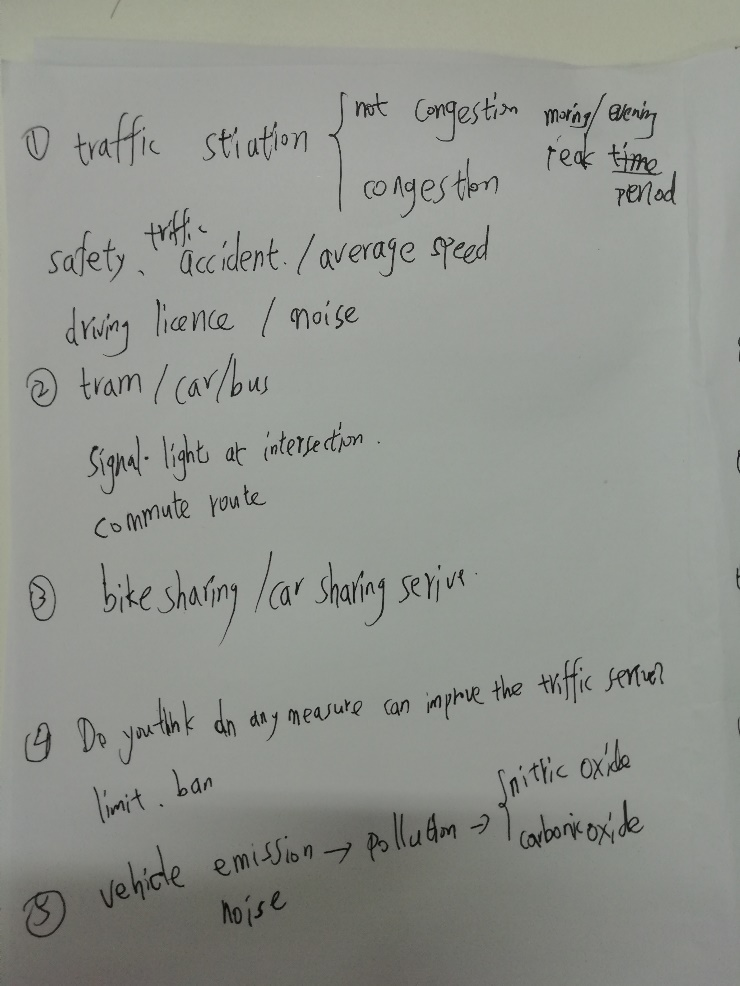 ① traffic stiation { not congestion moring/evening
congestion reak time
period
safety、triffic accident. / average speed
driving licence / noise
② tram / car/bus
signal-light at intersection.
commute route
③ bike sharing / car sharing serive.
④ Do you think an any measure can improve the triffic
limit、ban
⑤ vehicle emission → pollution → { nitric oxide
noise carbonic oxide